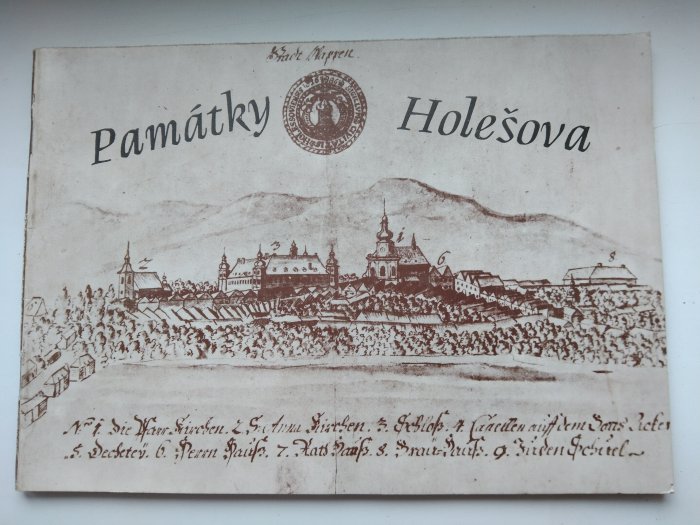 Stadt Wappen
Památky Holešova
2 3 1 6 8
No 1. Die Pfarr Kirchen. 2. St. Anna Kirchen. 3. Schloß. 4. Capellen auf dem Gotts Acker
5. Dechetey. 6. Herrn Hauß. 7. Rath Hauß. 8. Brau-Hauß. 9. Juden Schuel